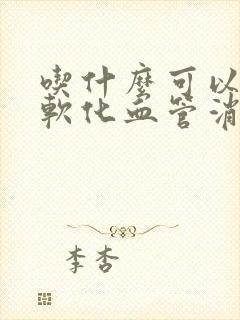 喫什麼可以
軟化血管消
李杏